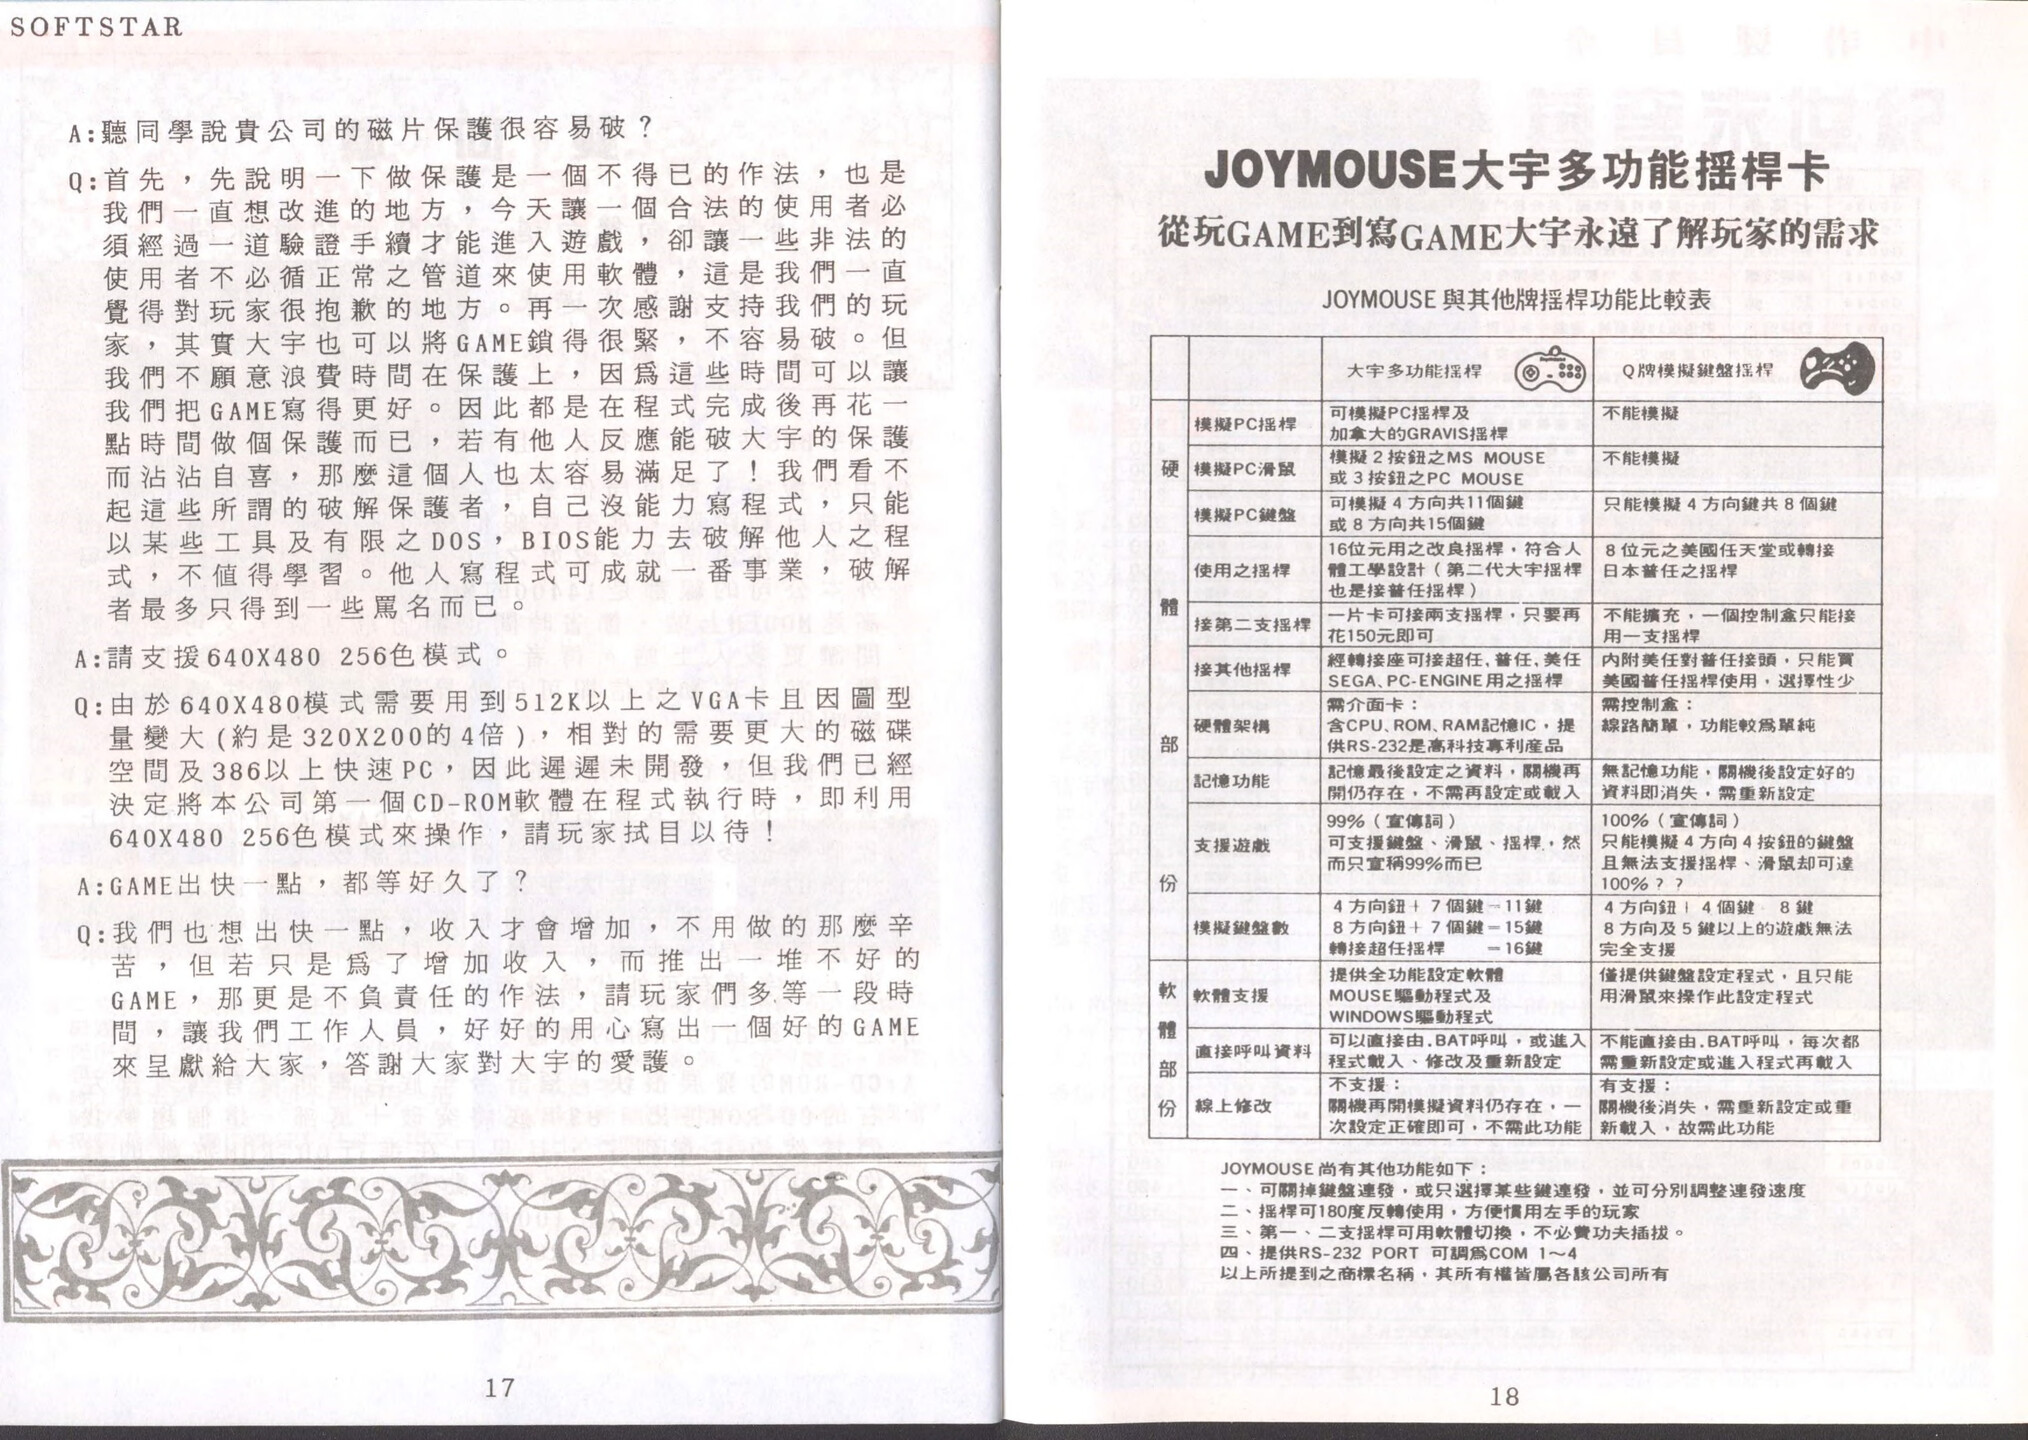 SOFTSTAR
A:聽同學說貴公司的磁片保護很容易破？
Q:首先，先說明一下做保護是一個不得已的作法，也是
我們一直想改進的地方，今天讓一個合法的使用者必
須經過一道驗證手續才能進入遊戲，卻讓一些非法的
使用者不必循正常之管道來使用軟體，這是我們一直
覺得對玩家很抱歉的地方。再一次感謝支持我們的玩
家，其實大宇也可以將GAME鎖得很緊，不容易破。但
我們不願意浪費時間在保護上，因為這些時間可以讓
我們把GAME寫得更好。因此都是在程式完成後再花一
點時間做個保護而已，若有他人反應能破大宇的保護
而沾沾自喜，那麼這個人也太容易滿足了！我們看不
起這些所謂的破解保護者，自己沒能力寫程式，只能
以某些工具及有限之DOS，BIOS能力去破解他人之程
式，不值得學習。他人寫程式可成就一番事業，破解
者最多只得到一些罵名而已。
A:請支援640X480 256色模式。
Q:由於640X480模式需要用到512K以上之VGA卡且因圖型
量變大(約是320X200的4倍)，相對的需要更大的磁碟
空間及386以上快速PC，因此遲遲未開發，但我們已經
決定將本公司第一個CD-ROM軟體在程式執行時，即利用
640X480 256色模式來操作，請玩家拭目以待！
A:GAME出快一點，都等好久了？
Q:我們也想出快一點，收入才會增加，不用做的那麼辛
苦，但若只是為了增加收入，而推出一堆不好的
GAME，那更是不負責任的作法，請玩家們多等一段時
間，讓我們工作人員，好好的用心寫出一個好的GAME
來呈獻給大家，答謝大家對大宇的愛護。
17
JOYMOUSE大宇多功能搖桿卡
從玩GAME到寫GAME大宇永遠了解玩家的需求
JOYMOUSE與其他牌搖桿功能比較表
大宇多功能搖桿 Q牌模擬鍵盤搖桿
硬體部份
模擬PC搖桿
可模擬PC搖桿及
加拿大的GRAVIS搖桿
不能模擬
模擬PC滑鼠
模擬2按鈕之MS MOUSE
或3按鈕之PC MOUSE
不能模擬
模擬PC鍵盤
可模擬4方向共11個鍵
或8方向共15個鍵
只能模擬4方向鍵共8個鍵
使用之搖桿
16位元用之改良搖桿，符合人
體工學設計（第二代大宇搖桿
也是接普任搖桿）
8位元之美國任天堂或轉接
日本普任之搖桿
接第二支搖桿
一片卡可接兩支搖桿，只要再
花150元即可
不能擴充，一個控制盒只能接
用一支搖桿
接其他搖桿
經轉接座可接超任、普任、美任
SEGA、PC-ENGINE用之搖桿
內附美任對普任接頭，只能買
美國普任搖桿使用，選擇性少
硬體架構
需介面卡：
含CPU、ROM、RAM記憶IC，提
供RS-232是高科技專利產品
需控制盒：
線路簡單，功能較為單純
記憶功能
記憶最後設定之資料，關機再
開仍存在，不需再設定或載入
無記憶功能，關機後設定好的
資料即消失，需重新設定
支援遊戲
99%（宣傳詞）
可支援鍵盤、滑鼠、搖桿，然
而只宣稱99%而已
100%（宣傳詞）
只能模擬4方向4按鈕的鍵盤
且無法支援搖桿、滑鼠卻可達
100%？？
模擬鍵盤數
4方向鈕＋7個鍵＝11鍵
8方向鈕＋7個鍵＝15鍵
轉接超任搖桿 ＝16鍵
4方向鈕＋4個鍵 8鍵
8方向及5鍵以上的遊戲無法
完全支援
軟體部份
軟體支援
提供全功能設定軟體
MOUSE驅動程式及
WINDOWS驅動程式
僅提供鍵盤設定程式，且只能
用滑鼠來操作此設定程式
直接呼叫資料
可以直接由.BAT呼叫，或進入
程式載入、修改及重新設定
不能直接由.BAT呼叫，每次都
需重新設定或進入程式再載入
線上修改
不支援：
關機再開模擬資料仍存在，一
次設定正確即可，不需此功能
有支援：
關機後消失，需重新設定或重
新載入，故需此功能
JOYMOUSE尚有其他功能如下：
一、可關掉鍵盤連發，或只選擇某些鍵連發，並可分別調整連發速度
二、搖桿可180度反轉使用，方便慣用左手的玩家
三、第一、二支搖桿可用軟體切換，不必費功夫插拔。
四、提供RS-232 PORT 可調為COM 1～4
以上所提到之商標名稱，其所有權皆屬各該公司所有
18